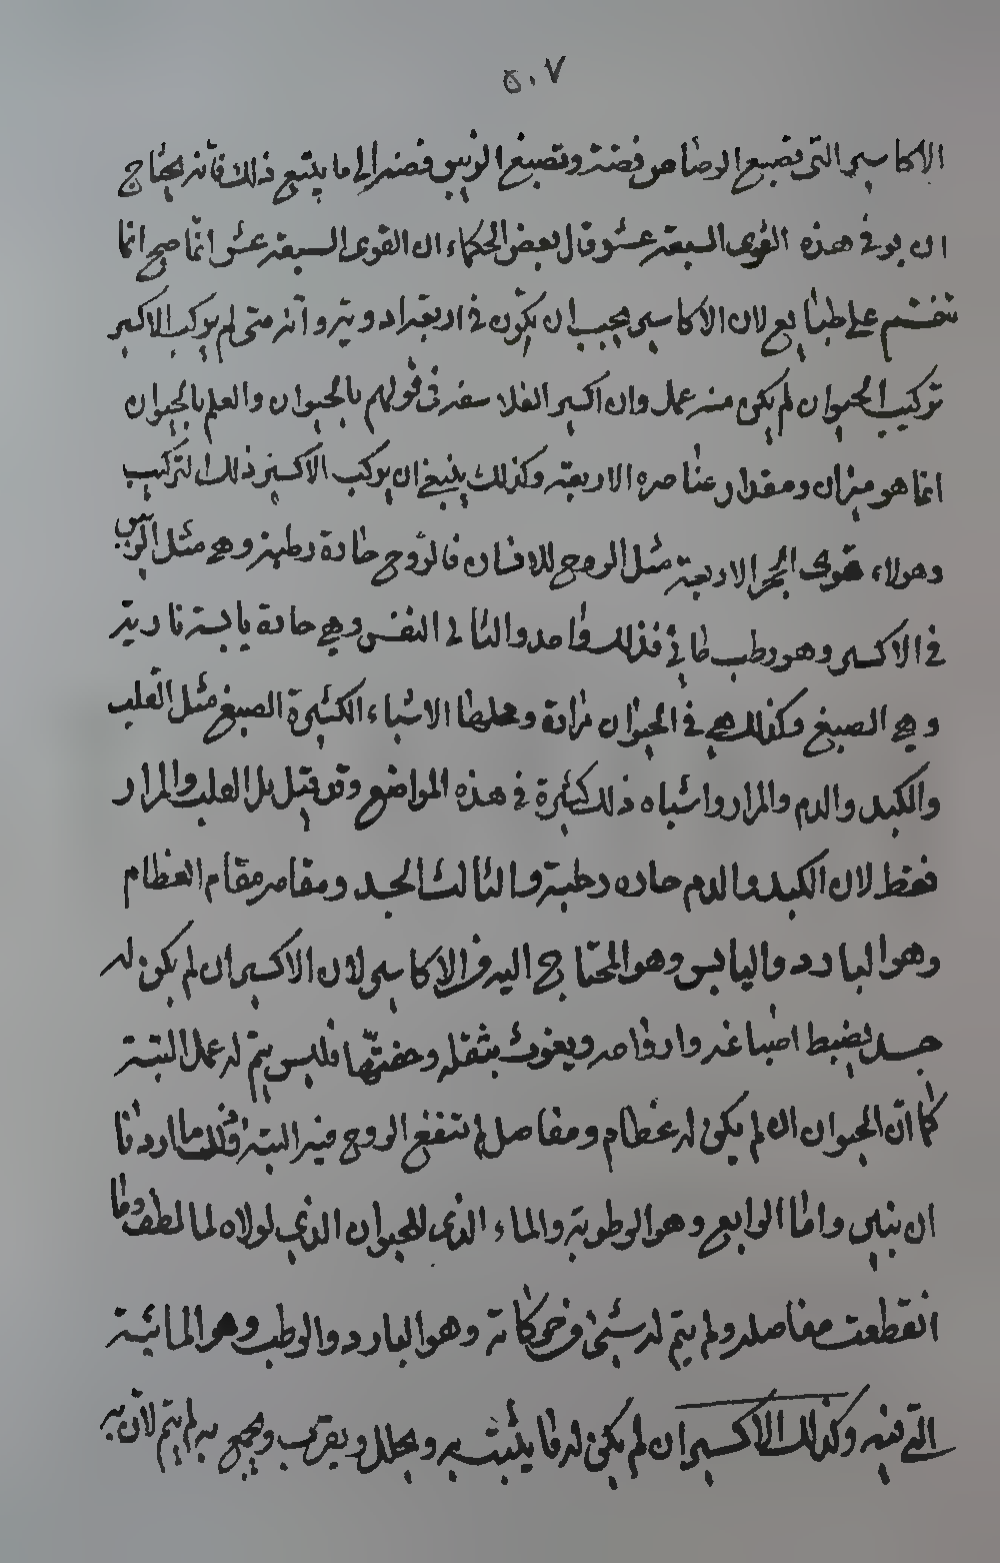 ٥٠٧
الاكاسير التى تصبغ الرصاص فضة وتصبغ الزيبق فضة الى ما يتبع ذلك فانه يحتاج
ان يوفى هذه القوى السبعة عشر وقال بعض الحكماء ان القوى السبعة عشر انما صح انما
تنقسم على طبايع لان الاكاسير يجب ان تكون فى اربعة ادوية وانه متى لم يركب الاكسير
تركيب الحيوان لم يكن منه عمل وان اكسير الفلاسفة فى قولهم بالحيوان والعلم بالحيوان
انما هو ميزان ومقدار عناصره الاربعة وكذلك ينبغى ان يركب الاكسير ذلك التركيب
وهولاء قوى الحجر الاربعة مثل الروح للانسان فالروح حارة رطبة وهى مثل الزيبق
فى الاكسير وهو رطب ما فى فذلك واحد والثانى النفس وهى حارة يابسة نارية
وهى الصبغ وكذلك هى فى الحيوان مرارة ومحلها الاشياء الكثيرة الصبغ مثل القلب
والكبد والدم والمرار واشباه ذلك كثيرة فى هذه المواضع وقد قيل بل القلب والمرار
فقط لان الكبد والدم حاره رطبة والثالث الجسد ومقامه مقام العظام
وهو البارد واليابس وهو المحتاج اليه فى الاكاسير لان الاكسير ان لم يكن له
جسد يضبط اصباغه وارواحه ويغوث بثقله وخفتها فليس يتم له عمل البتة
كما ان الحيوان ان لم يكن له عظام ومفاصل لم تنتفع الروح فيه البتة فذلك ما اردنا
ان نبين واما الرابع وهو الرطوبة والماء الذى للحيوان الذى لولاه لما لطف ولما
انقطعت مفاصله ولم يتم له شيئ من حركاته وهو البارد والرطب وهو المائية
التى فيه وكذلك الاكسير ان لم يكن له ما يثبت به ويحلل ويقرب ويجمع به لم يتم لان به